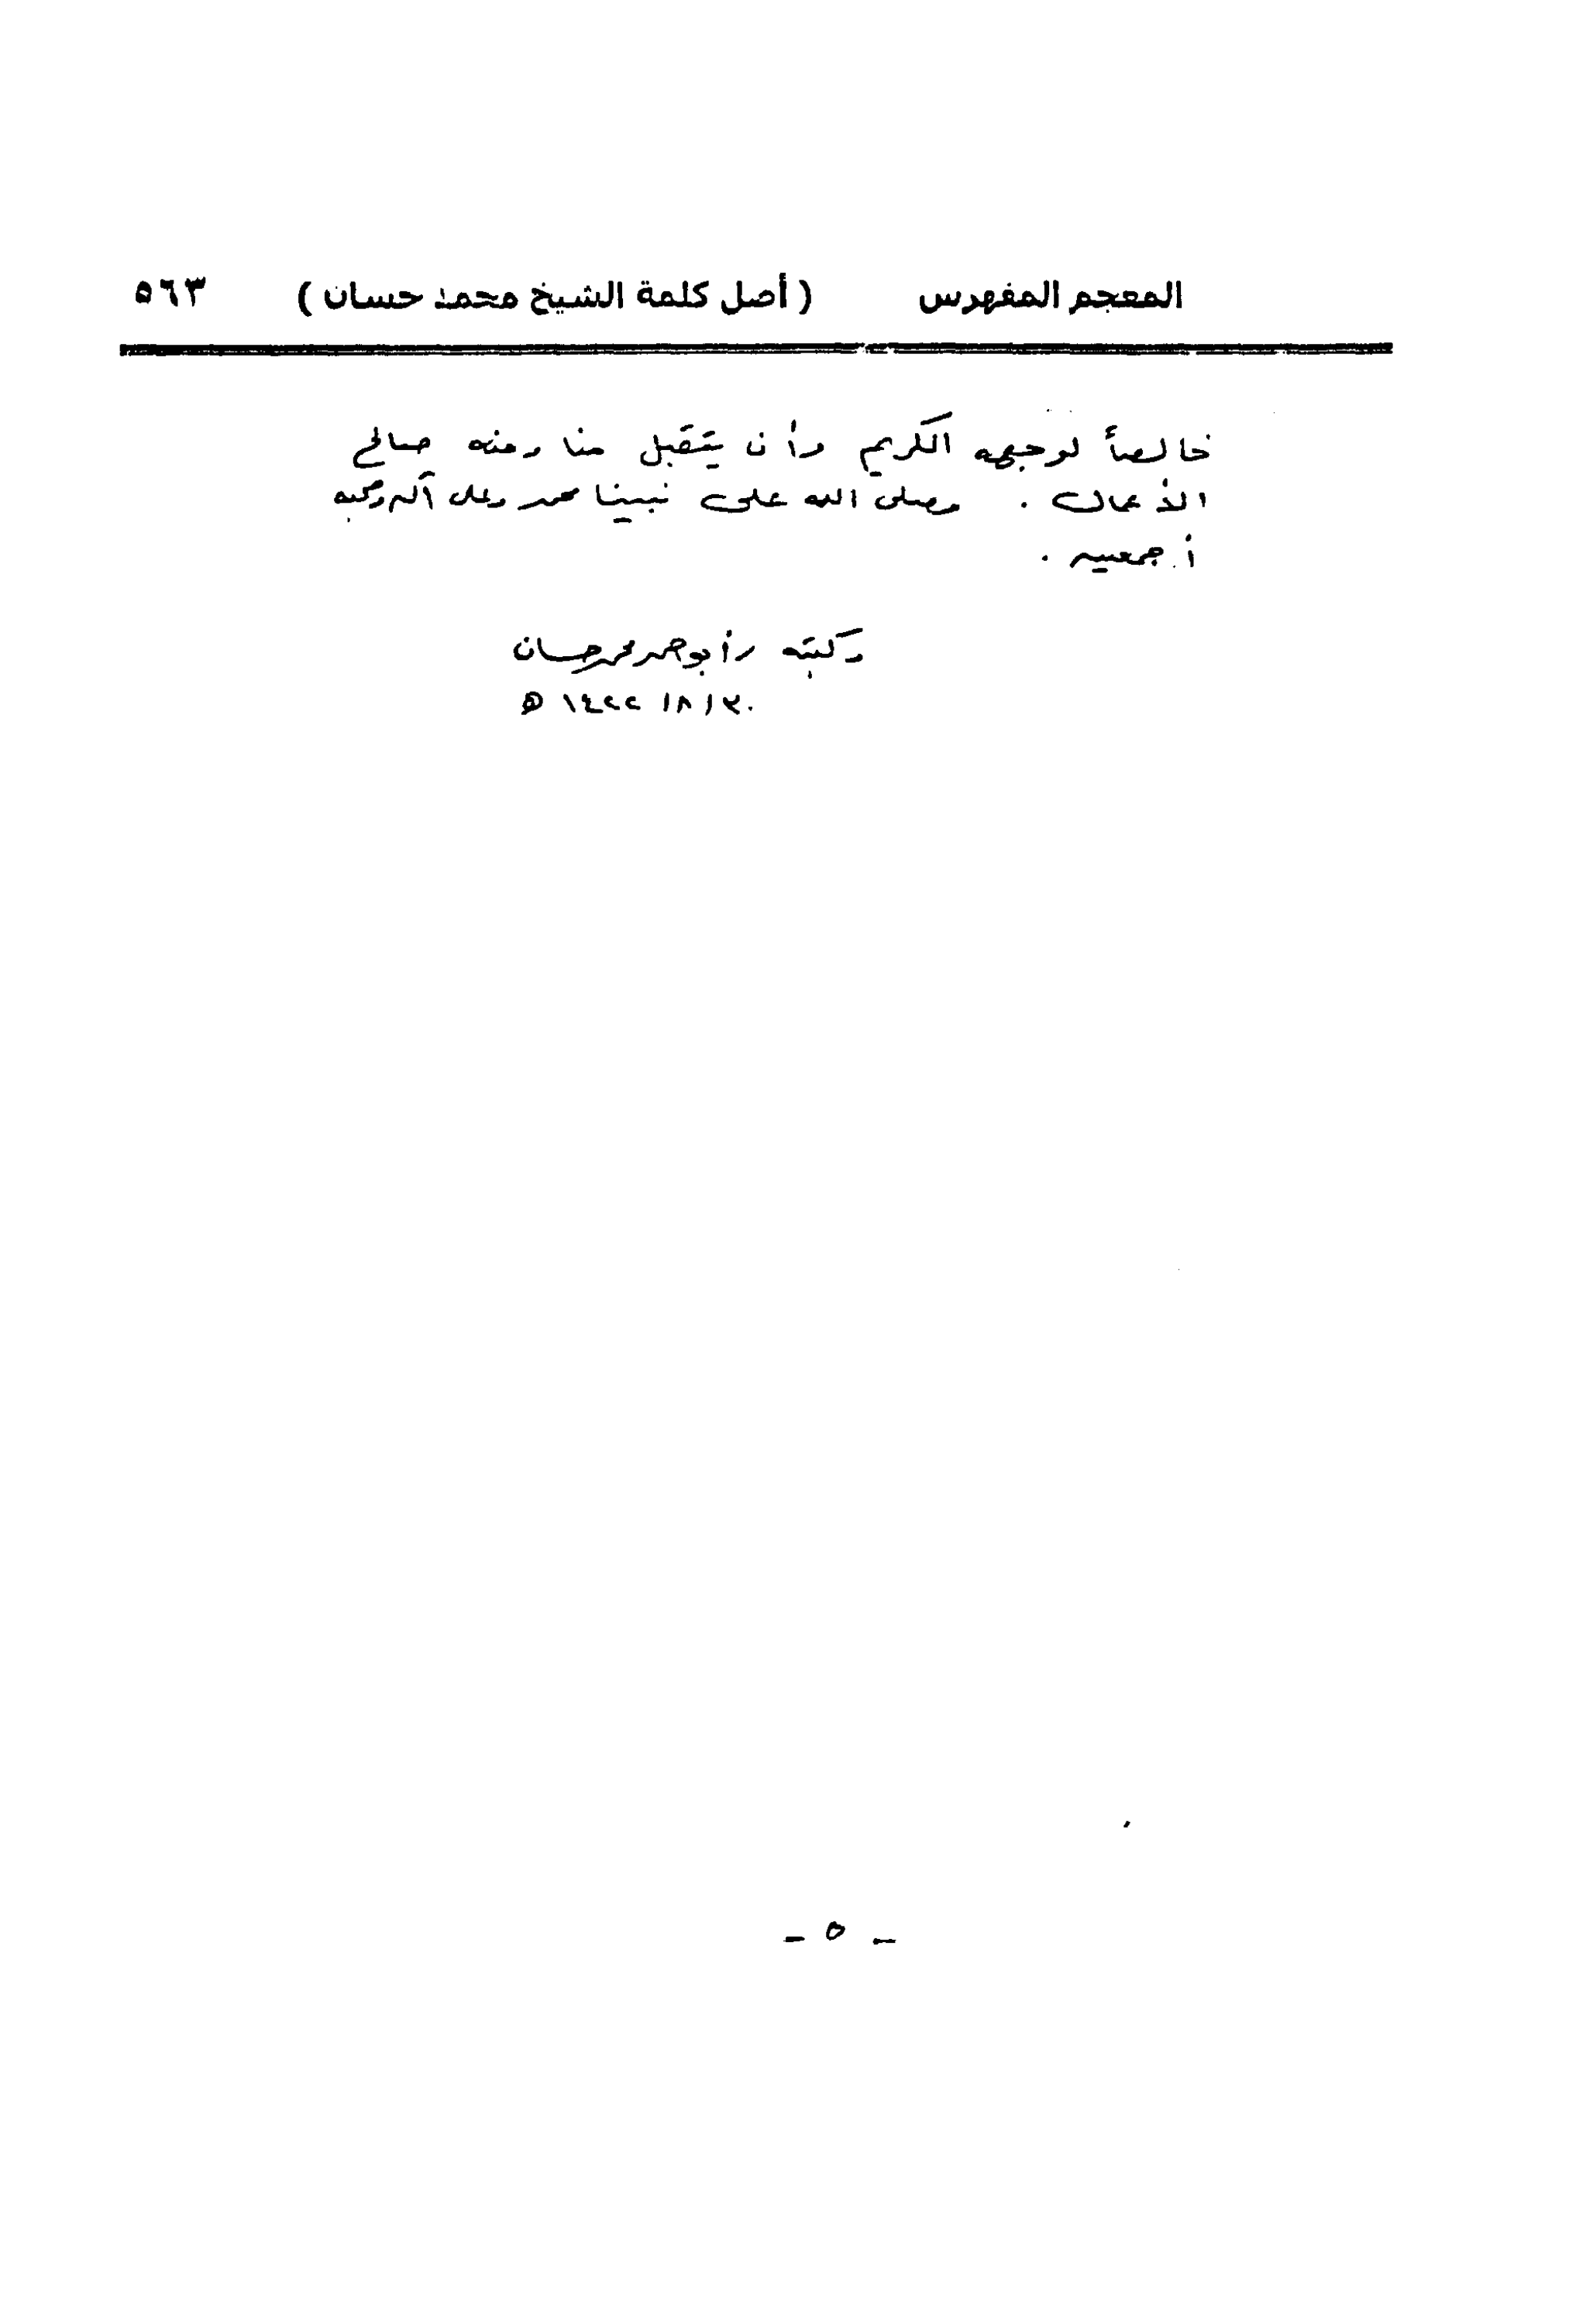 المعجم المفهرس ( أصل كلمة الشيخ محمد حسان ) ٥٦٣
خالصاً لوجهه الكريم وأن يتقبل منا ومنه صالح
الأعمال . وصلى الله على نبينا محمد وعلى آله وصحبه
أجمعين .
وكتبه / أبو أحمد محمد حسان
٣٠ / ٨ / ١٤٢٢ هـ
- ٥ -